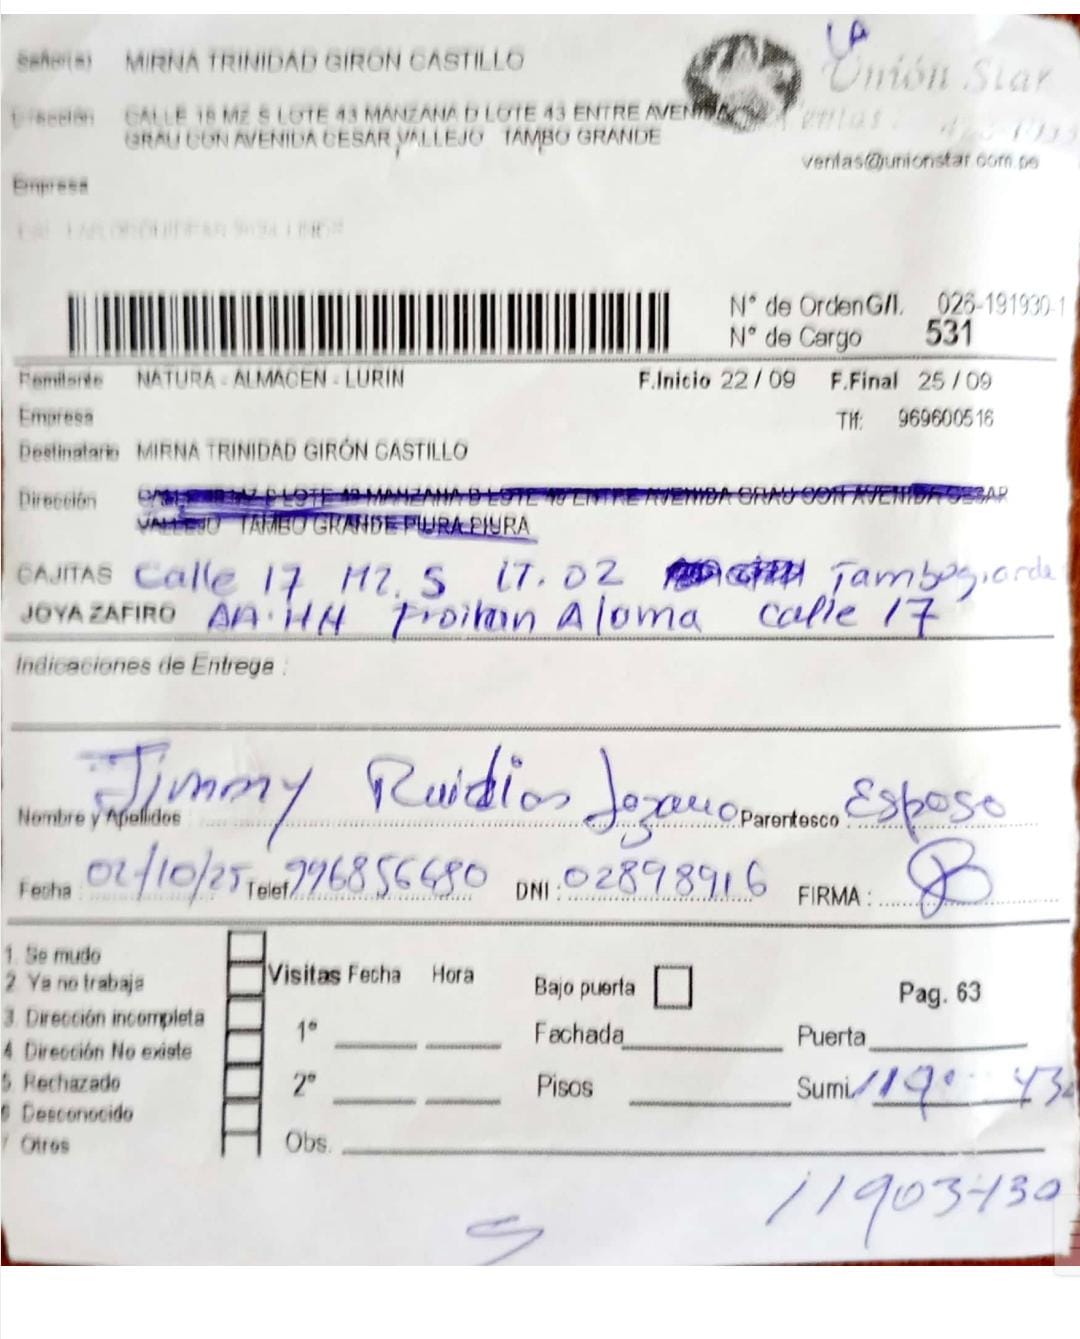 LA
Señor(a) MIRNA TRINIDAD GIRON CASTILLO
Unión Star
Dirección CALLE 18 MZ S LOTE 43 MANZANA D LOTE 43 ENTRE AVENIDA
GRAU CON AVENIDA CESAR VALLEJO TAMBO GRANDE
ventas@unionstar.com.pe
Empresa
N° de Orden G/I. 026-191930-1
N° de Cargo 531
Remitente NATURA - ALMACEN - LURIN F.Inicio 22 / 09 F.Final 25 / 09
Empresa Tlf: 969600516
Destinatario MIRNA TRINIDAD GIRÓN CASTILLO
Dirección LOTE 43 MANZANA D LOTE 43 ENTRE AVENIDA GRAU CON AVENIDA CESAR
VALLEJO TAMBO GRANDE PIURA PIURA
CAJITAS Calle 17 Mz. S LT. 02 Tambogrande
JOYA ZAFIRO AA.HH Froilan Alama calle 17
Indicaciones de Entrega :
Nombre y Apellidos Jimmy Ruidias Lozano Parentesco : Esposo
Fecha : 02/10/25 Telef. 996856680 DNI : 02898916 FIRMA :
1. Se mudo
2 Ya no trabaja
3. Dirección incompleta
4 Dirección No existe
5 Rechazado
6 Desconocido
7 Otros
Visitas Fecha Hora
1°
2°
Obs.
Bajo puerta
Fachada
Pisos
Pag. 63
Puerta
Sumi.
11903430